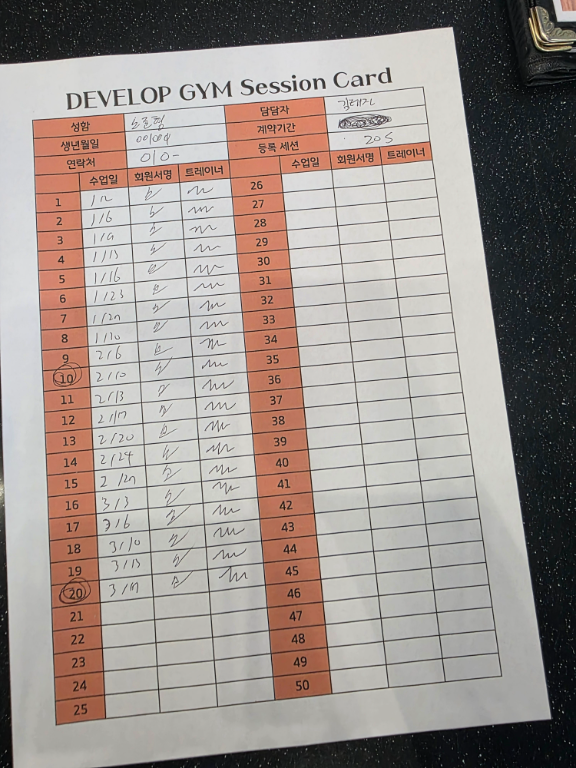 DEVELOP GYM Session Card
성함 담당자
생년월일 001004 계약기간
연락처 010- 등록 세션 20S
수업일 회원서명 트레이너 수업일 회원서명 트레이너
1 1/2 26
2 1/6 27
3 1/9 28
4 1/13 29
5 1/16 30
6 1/23 31
7 1/27 32
8 1/30 33
9 2/6 34
10 2/10 35
11 2/13 36
12 2/17 37
13 2/20 38
14 2/24 39
15 2/27 40
16 3/3 41
17 3/6 42
18 3/10 43
19 3/13 44
20 3/17 45
21 46
22 47
23 48
24 49
25 50